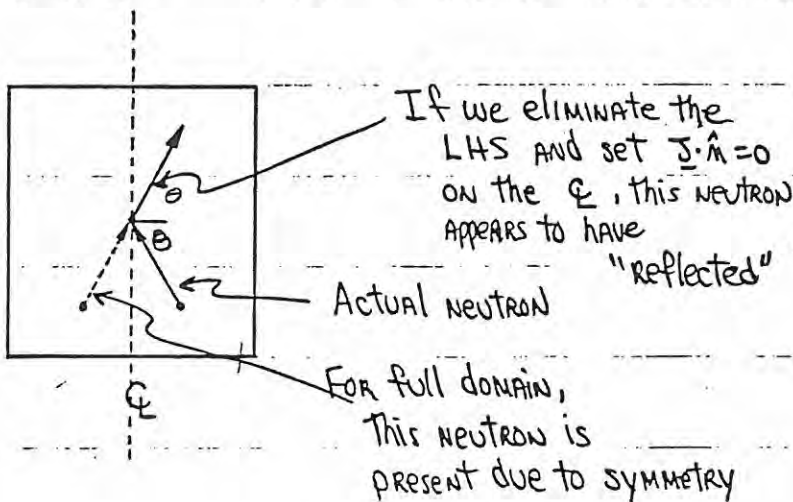 If we eliminate the
LHS AND set J·n̂=0
ON the ℄, this NEUTRON
APPEARS to have
"Reflected"
θ
θ
Actual NEUTRON
℄
FOR full domain,
This NEUTRON is
present due to symmetry